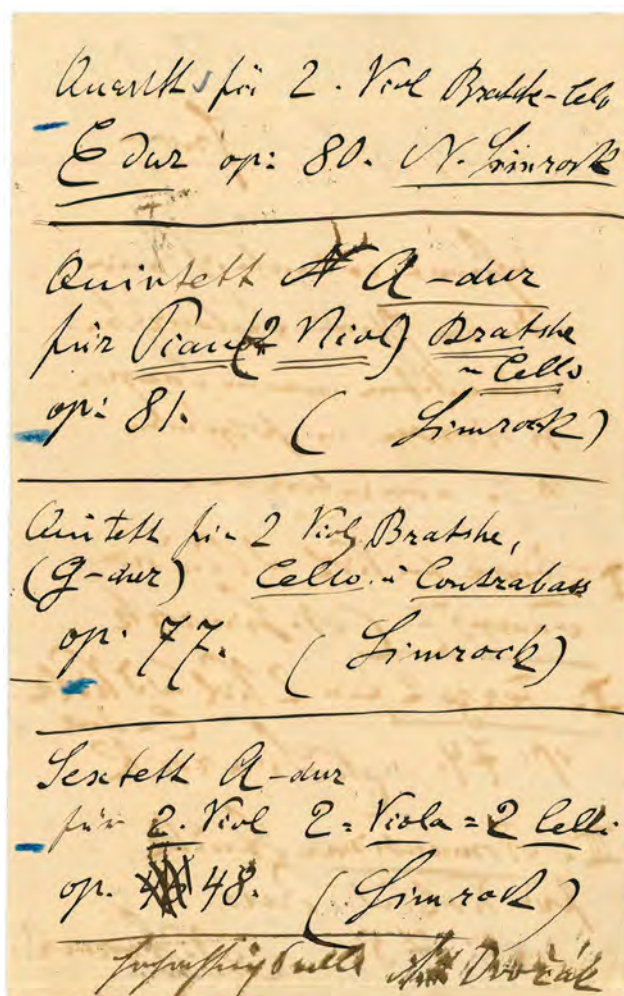 Quartett für 2. Viol Bratshe-Celo
E dur op: 80. N. Simrock
Quintett A-dur
für Piano (2 Viol) Bratshe
u Cello
op: 81. (Simrock)
Quintett für 2 Viol, Bratshe,
(G-dur) Cello u Contrabass
op. 77. (Simrock)
Sextett A-dur
für 2. Viol 2=Viola=2 Celli
op. 48. (Simrock)
Dvořák